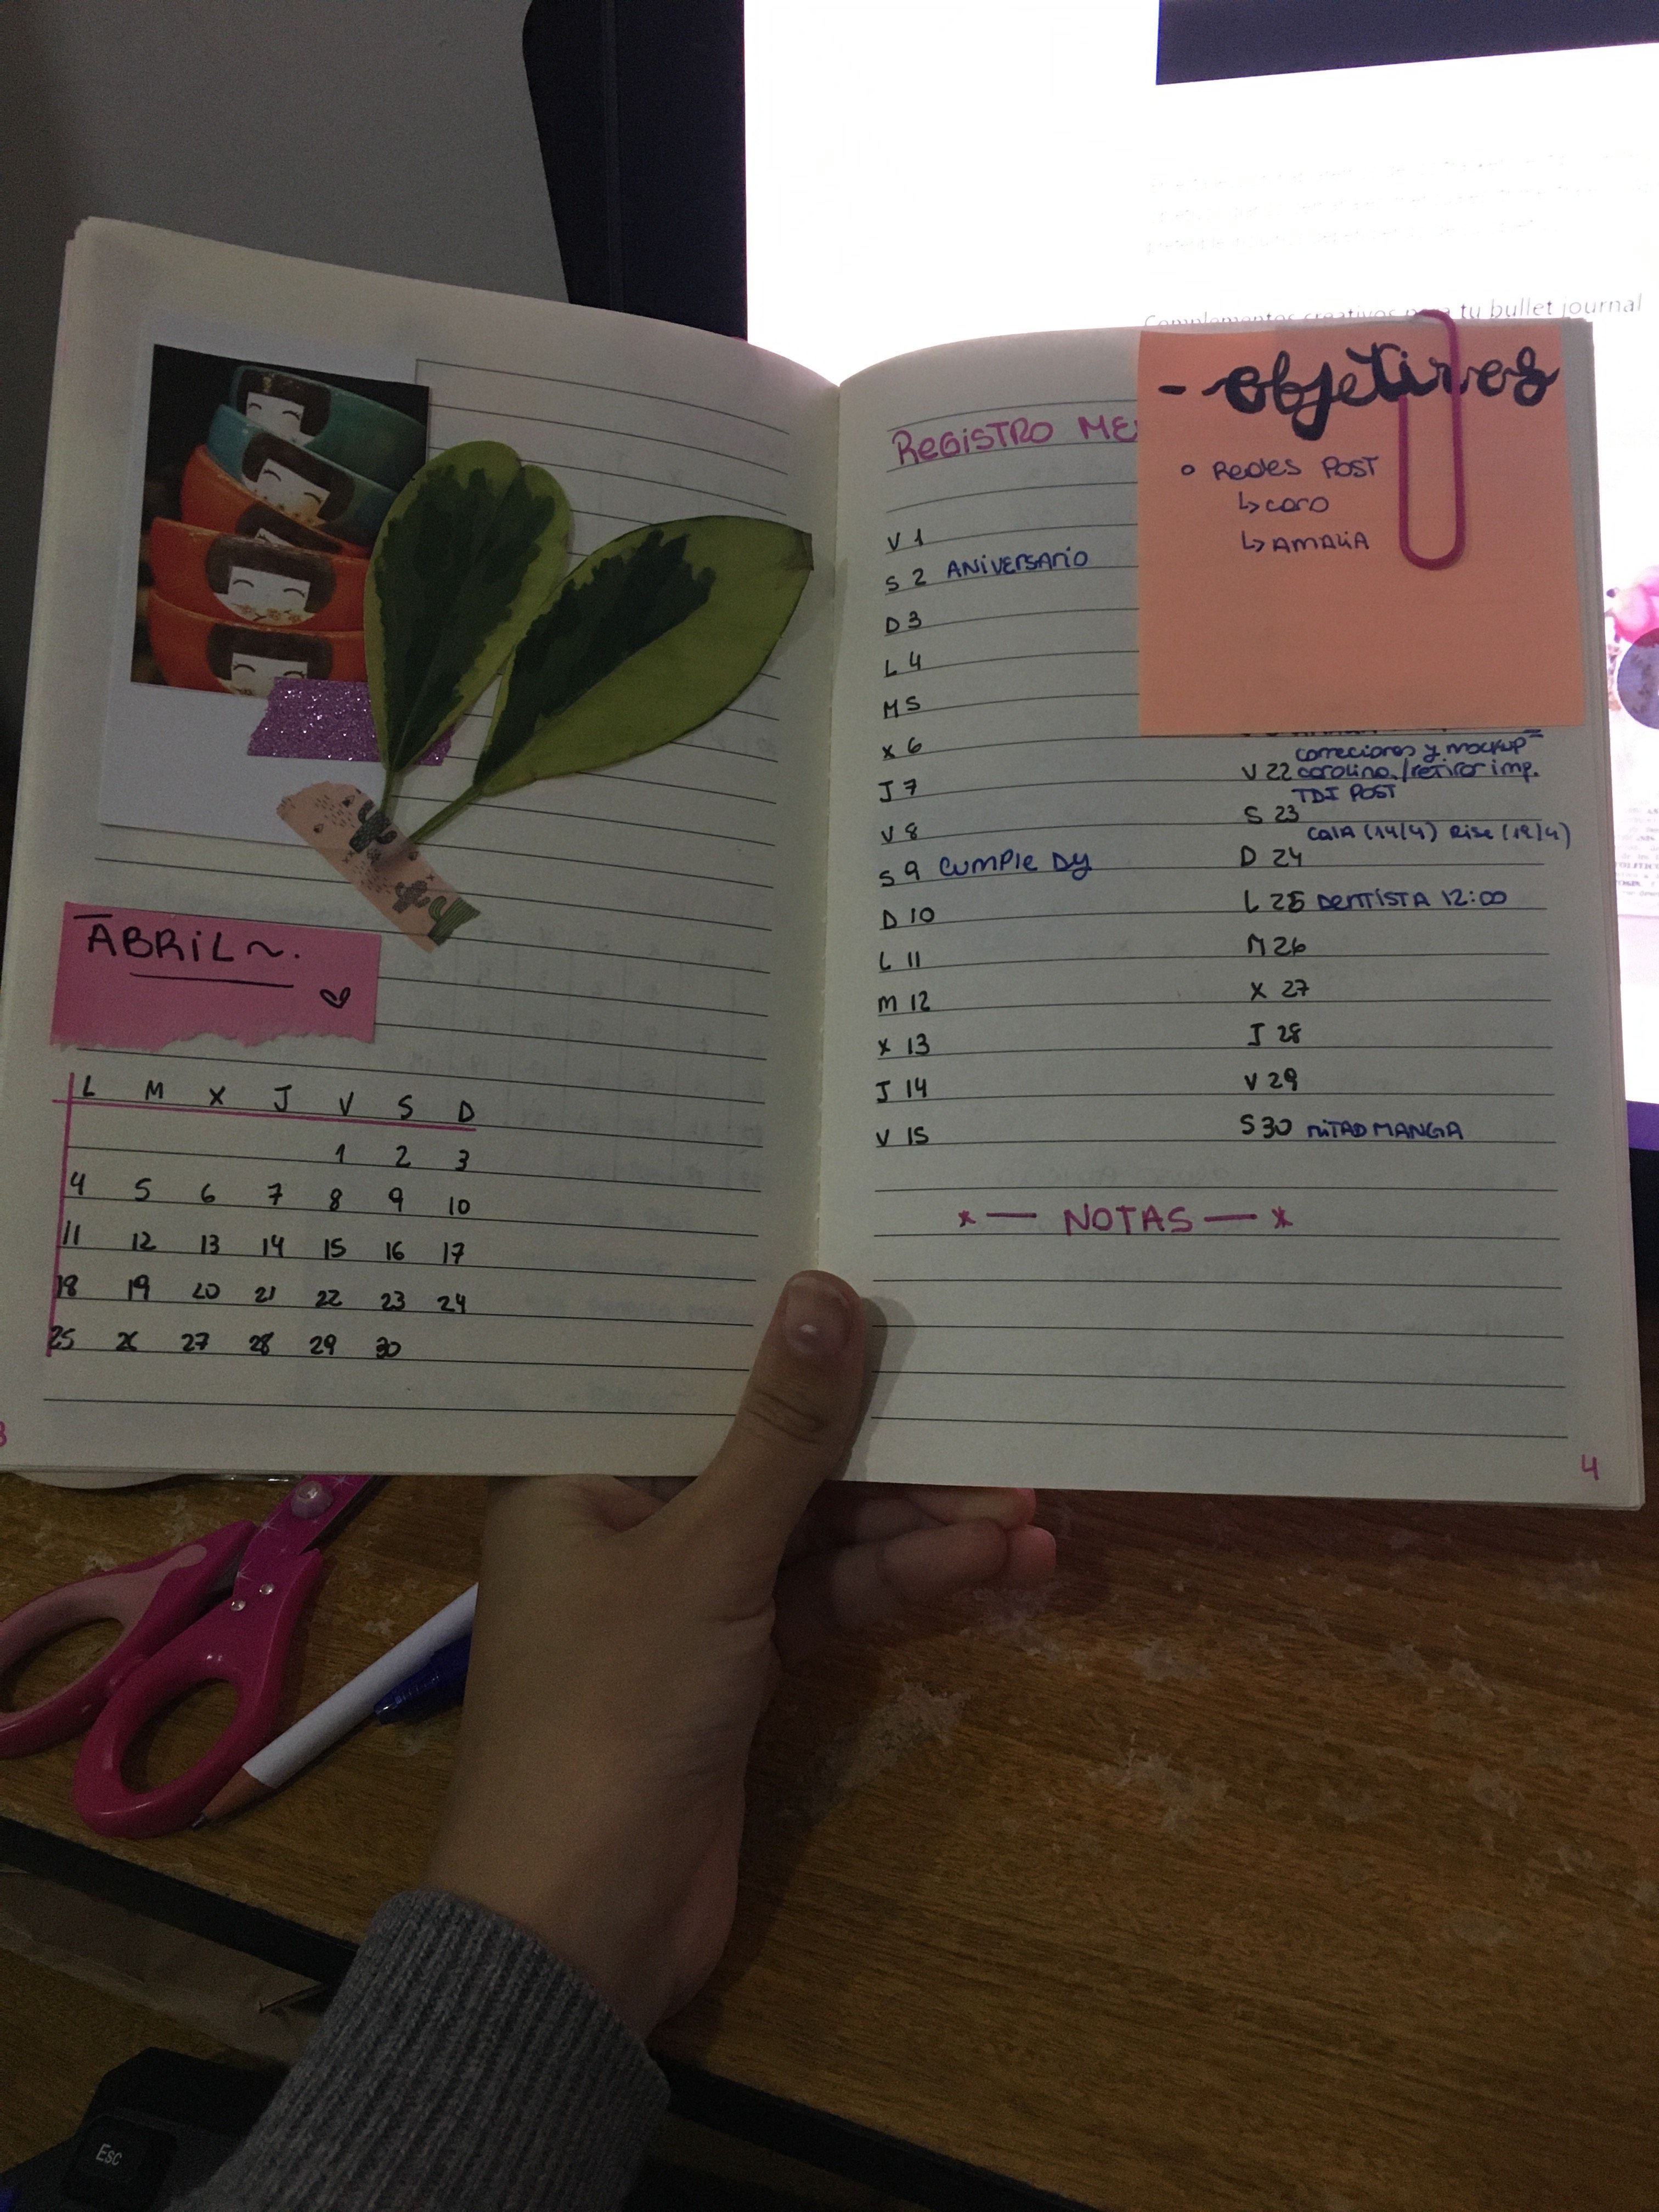 Complementos creativos para tu bullet journal
ABRIL~.
L M X J V S D
1 2 3
4 5 6 7 8 9 10
11 12 13 14 15 16 17
18 19 20 21 22 23 24
25 26 27 28 29 30
REGISTRO ME
V 1
S 2 ANIVERSARIO
D 3
L 4
M 5
X 6
J 7
V 8
S 9 CUMPLE DY
D 10
L 11
M 12
X 13
J 14
V 15
- objetivos
REDES POST
↳ CARO
↳ AMALIA
correciones y mockup
V 22 carolina. / retirar imp.
TDI POST
S 23
CATA (14/4) Rise (19/4)
D 24
L 25 DENTISTA 12:00
M 26
X 27
J 28
V 29
S 30 MITAD MANGA
* — NOTAS — *
4
Esc